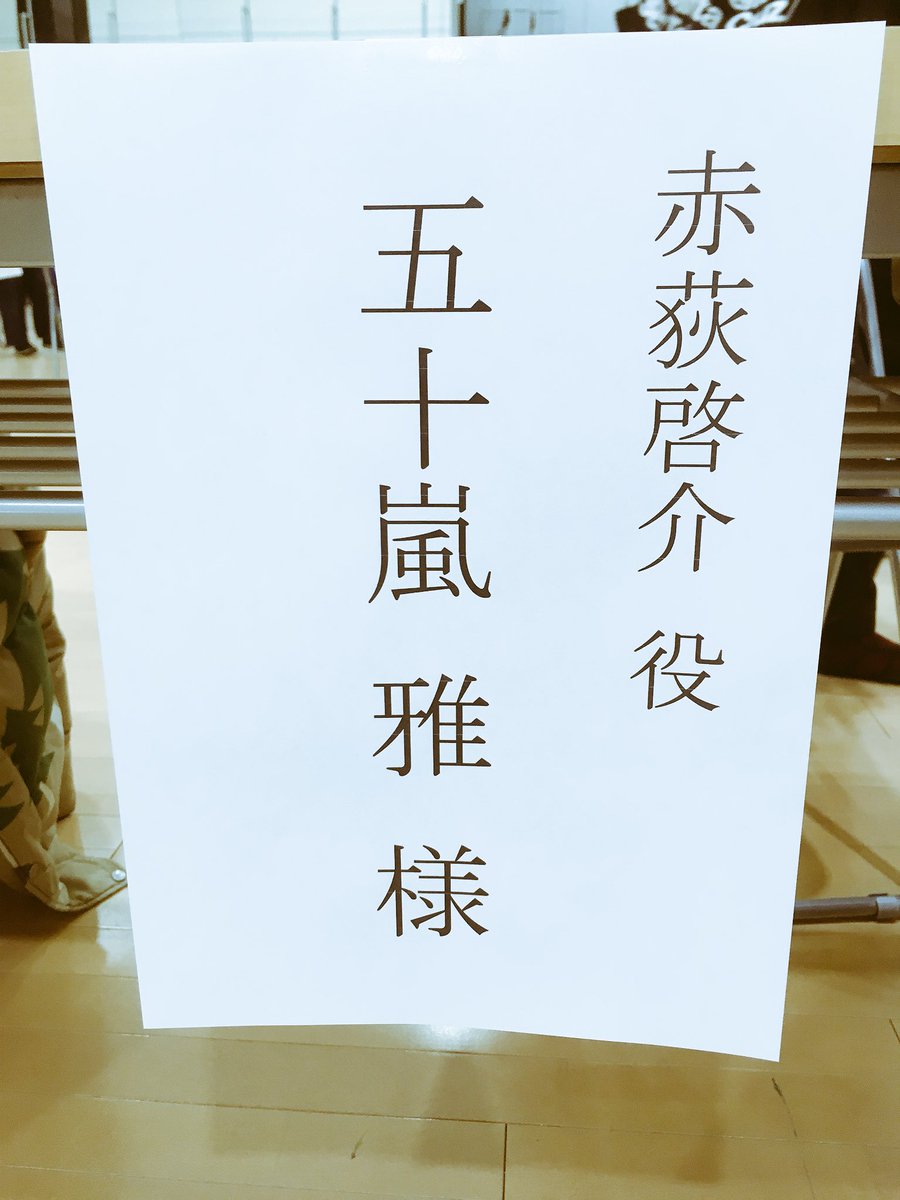 赤荻啓介 役
五十嵐 雅 様